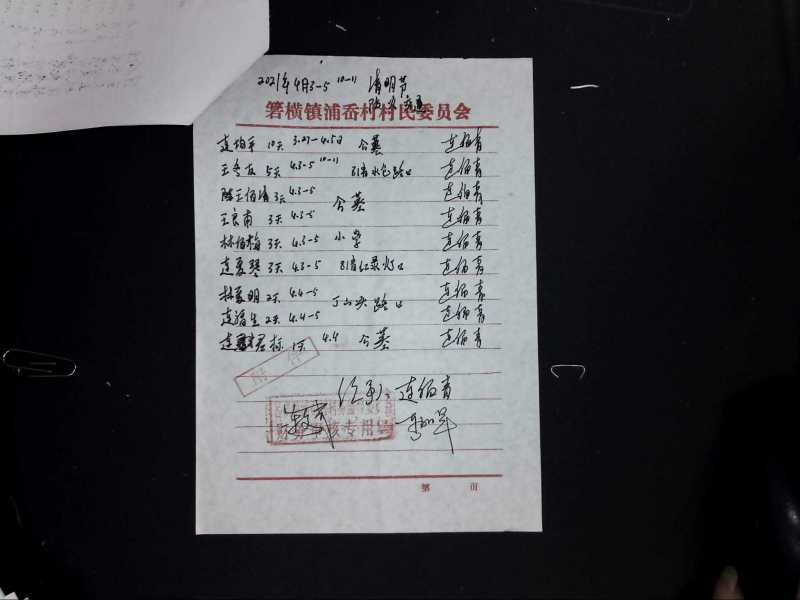 2021年4月3-5 10-11 清明节
防火 交通
箬横镇浦岙村村民委员会
连均平 10天 3.27-4.5日 公墓 连伯青
王冬友 5天 4.3-5 10-11 81省水仓路口 连伯青
陈王伯清 3天 4.3-5 公墓 连伯青
王良甫 3天 4.3-5 连伯青
林伯梅 3天 4.3-5 小学 连伯青
连夏琴 3天 4.3-5 81省红录灯口 连伯青
林夏明 2天 4.4-5 丁山头路口 连伯青
连福生 2天 4.4-5 连伯青
连君标 1天 4.4 公墓 连伯青
经手人: 连伯青
专用章
第 页